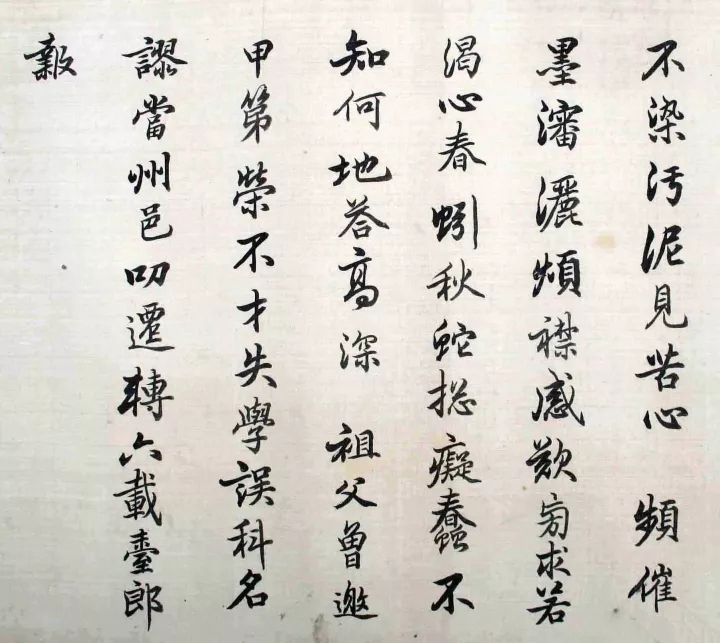 不染污泥見苦心 頻催
墨瀋灑煩襟感歎旁求若
渴心春蚓秋蛇揔癡蠢不
知何地答高深 祖父曾邀
甲第榮不才失學誤科名
謬當州邑叨遷轉六載臺郎
報